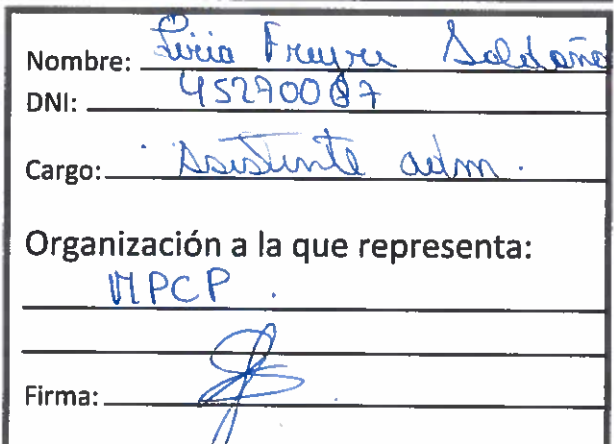 Nombre: Liria Freyre Saldaña
DNI: 45290087
Cargo: Asistente adm.
Organización a la que representa:
MPCP.
Firma: